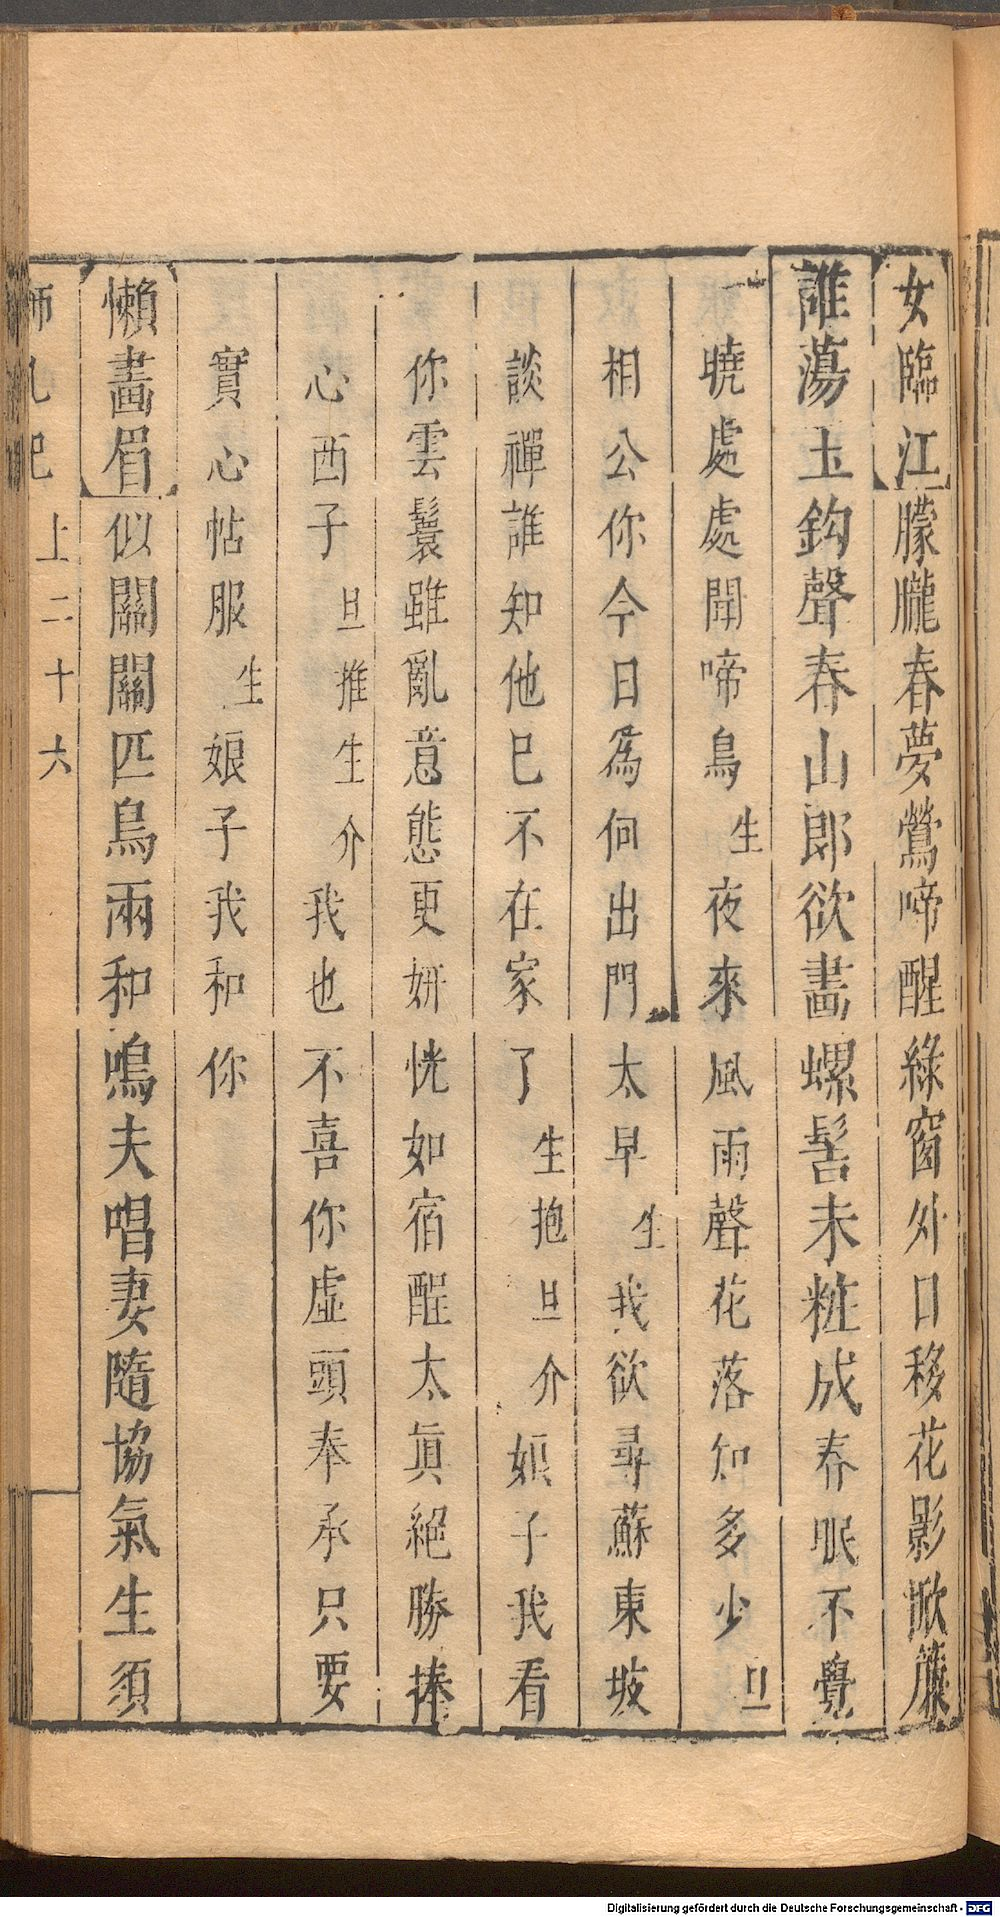 女臨江朦朧春夢鶯啼醒綠窗外口移花影掀簾
誰蕩玉鈎聲春山郎欲畵螺髻未粧成春眠不覺
曉處處聞啼鳥生夜來風雨聲花落知多少旦
相公你今日為何出門太早生我欲尋蘇東坡
談禪誰知他已不在家了生抱旦介娘子我看
你雲鬟雖亂意態更妍恍如宿酲太眞絕勝捧
心西子旦推生介我也不喜你虛頭奉承只要
實心帖服生娘子我和你
懶畵眉似關關匹鳥兩和鳴夫唱妻隨協氣生須
師 記 上二十六
Digitalisierung gefördert durch die Deutsche Forschungsgemeinschaft - DFG